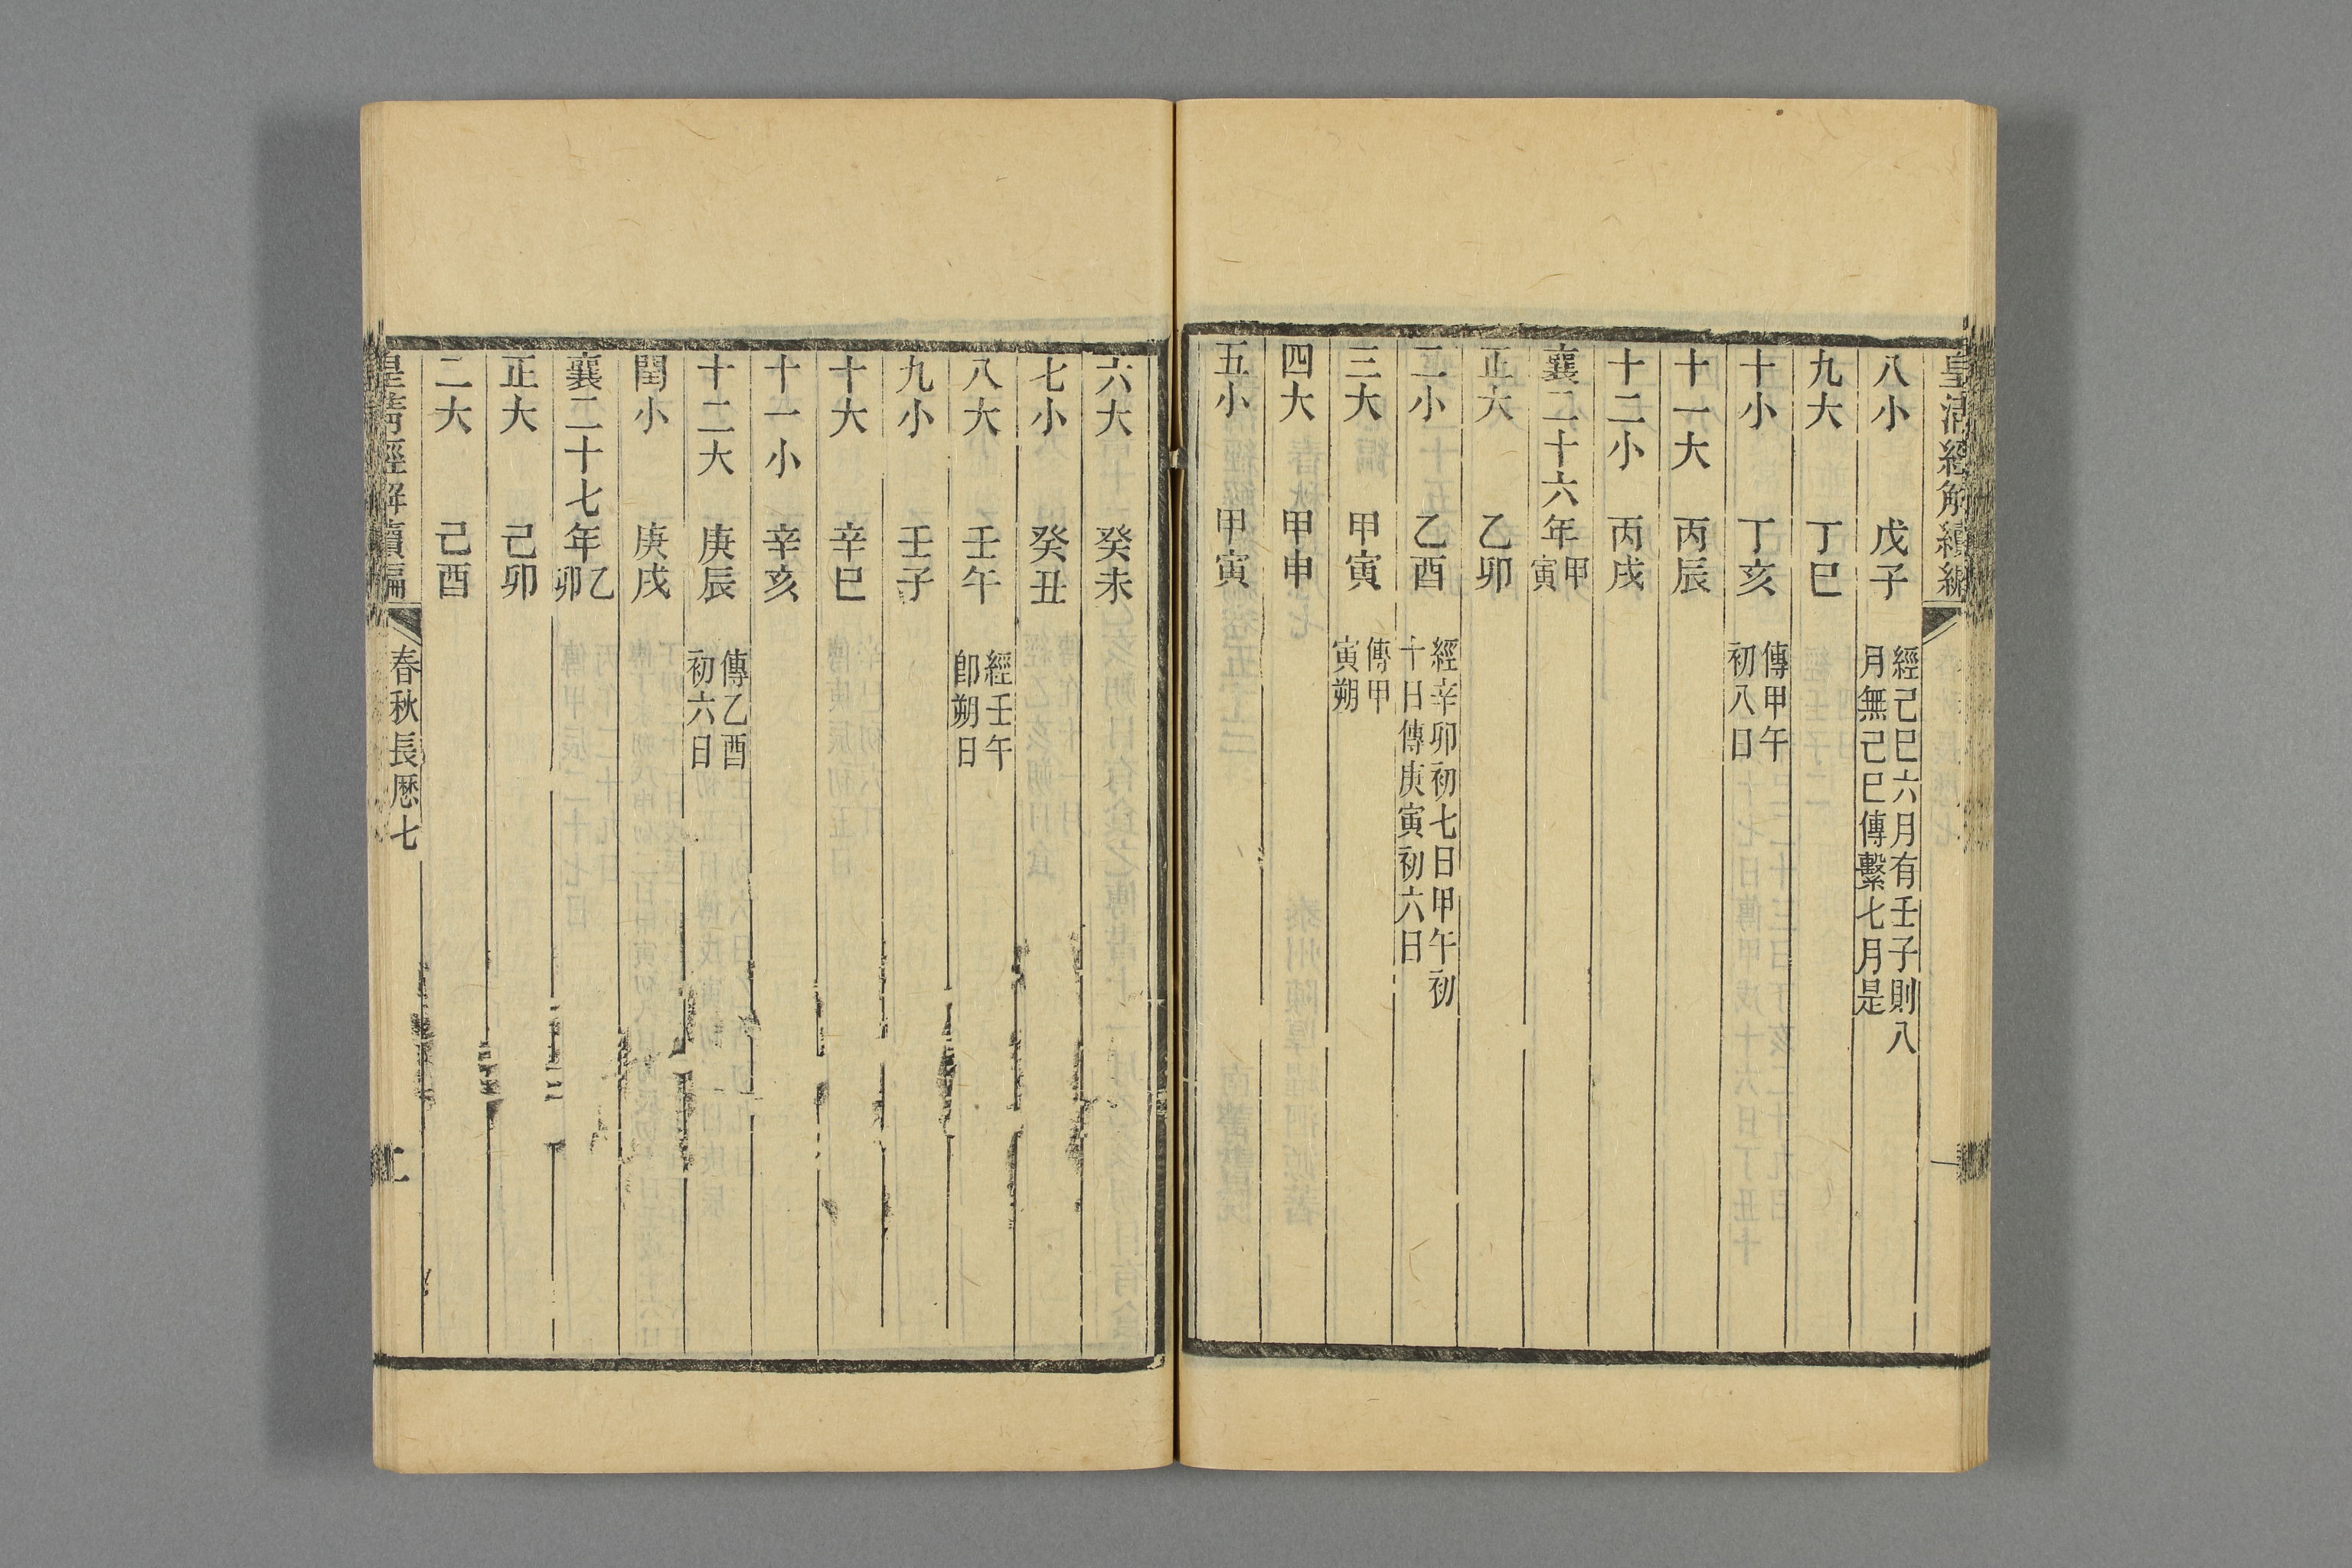 皇清經解續編
八小 戊子 經己巳六月有壬子則八
月無己巳傳繫七月是
九大 丁巳
十小 丁亥 傳甲午
初八日
十一大 丙辰
十二小 丙戌
襄二十六年甲
寅
正大 乙卯
二小 乙酉 經辛卯初七日甲午初
十日傳庚寅初六日
三大 甲寅 傳甲
寅朔
四大 甲申
五小 甲寅
六大 癸未
七小 癸丑
八大 壬午 經壬午
卽朔日
九小 壬子
十大 辛巳
十一小 辛亥
十二大 庚辰 傳乙酉
初六日
閏小 庚戌
襄二十七年乙
卯
正大 己卯
二大 己酉
皇清經解續編 春秋長厯七 二